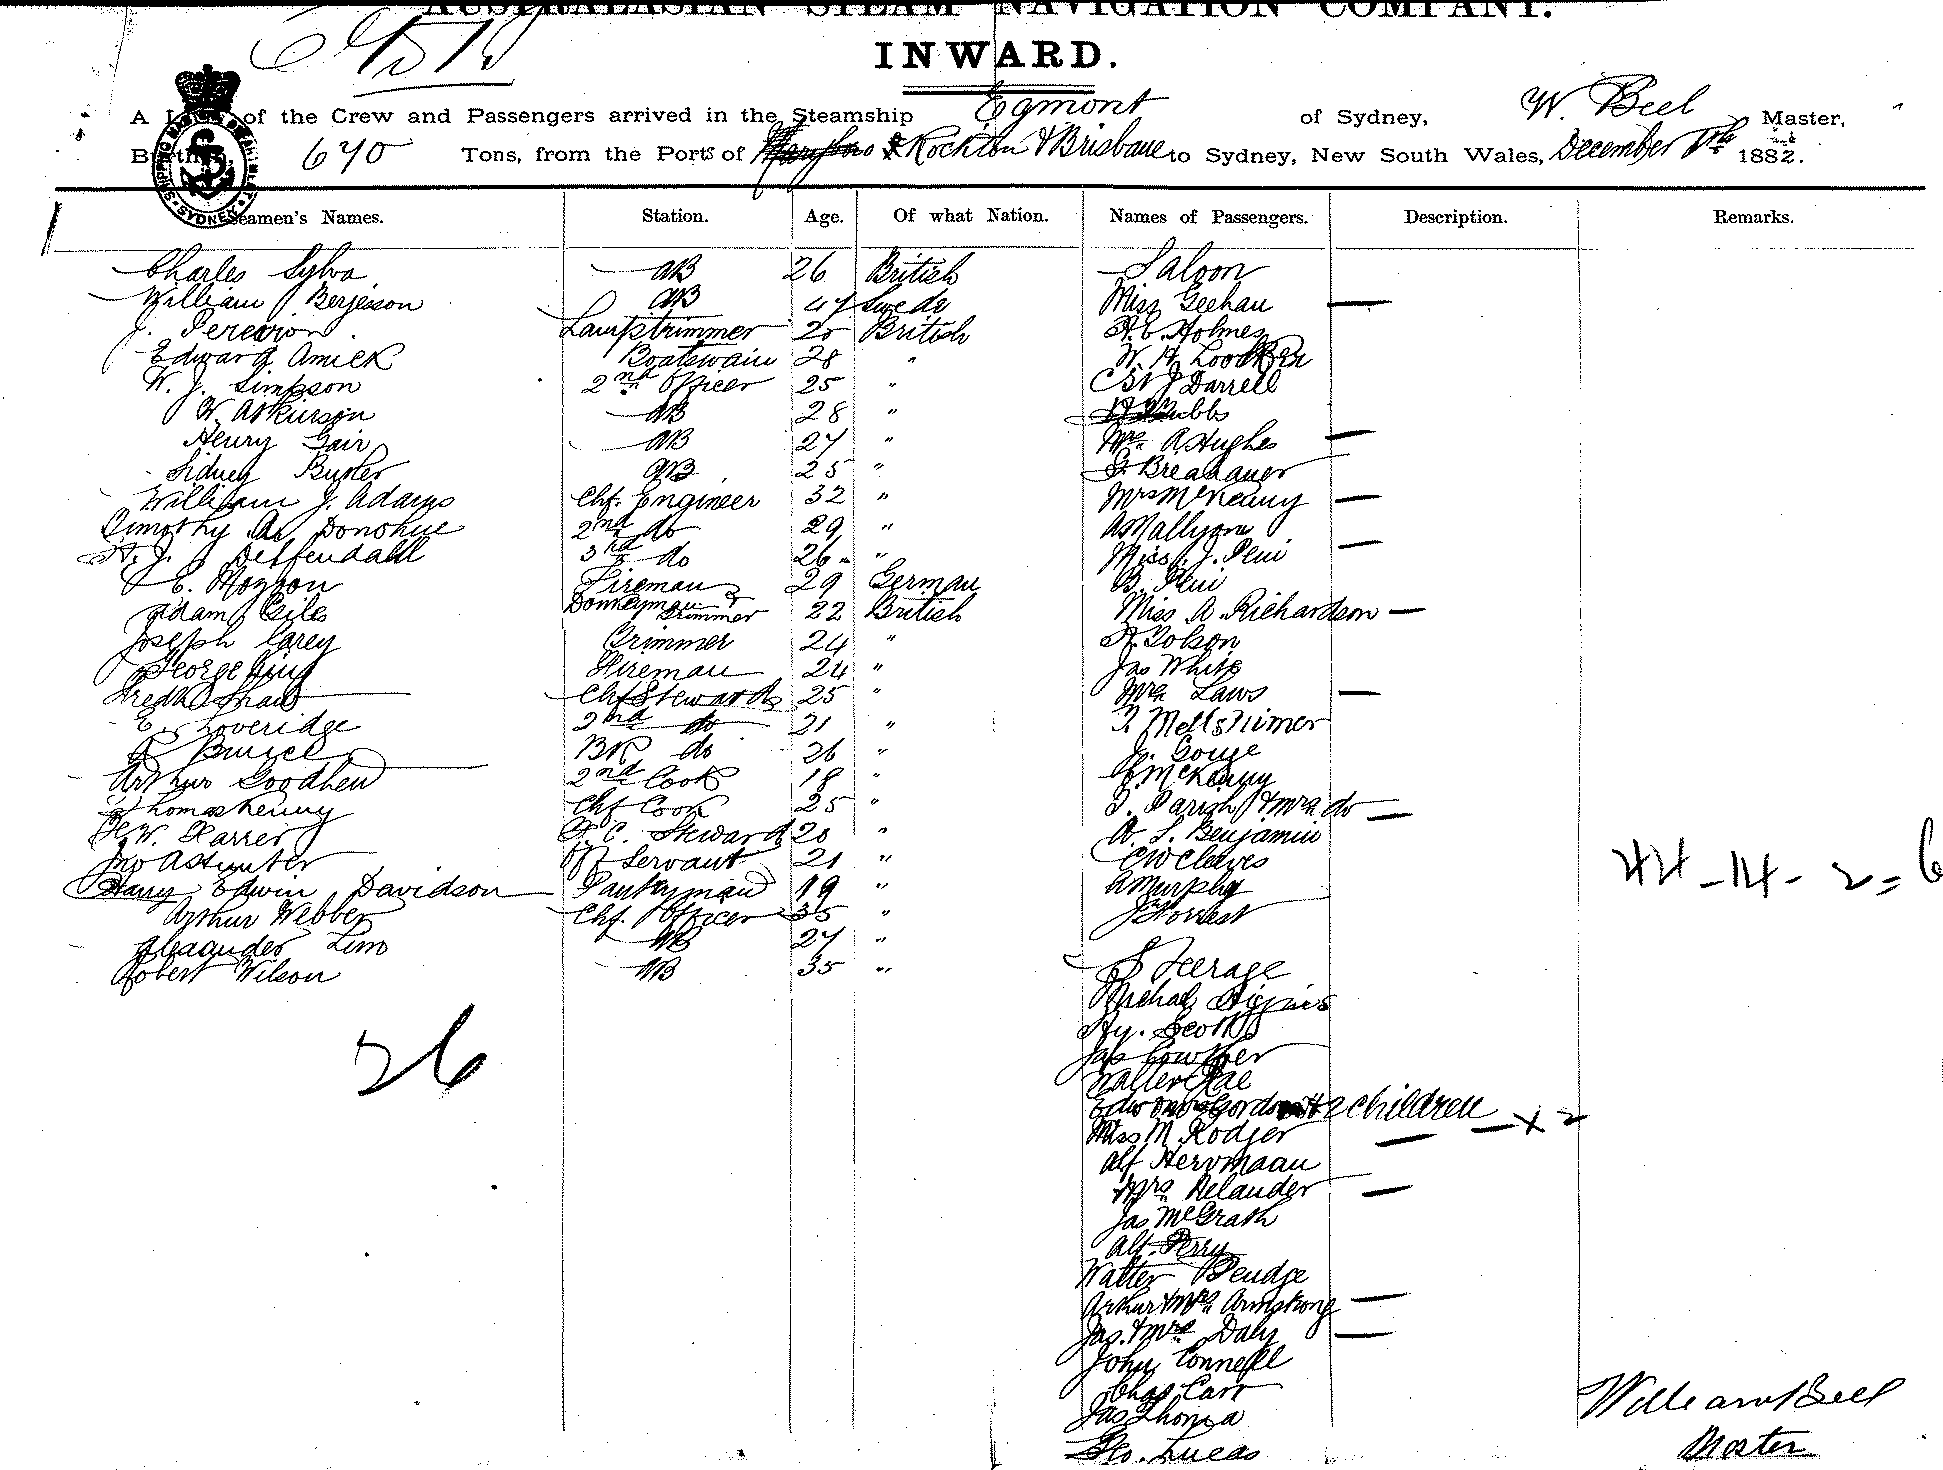 AUSTRALASIAN STEAM NAVIGATION COMPANY.
INWARD.
A L of the Crew and Passengers arrived in the Steamship Egmont of Sydney, W. Beel Master,
Burthen, 670 Tons, from the Ports of & Rockton & Brisbane to Sydney, New South Wales, December 1882.
SHIPPING MASTERS DEPARTMENT SYDNEY
Seamen's Names. Station. Age. Of what Nation. Names of Passengers. Description. Remarks.
Charles Sylva AB 26 British Saloon
William Berjesson AB 47 Swede Miss Geehan
J. Lamptrimmer 20 British H. E. Holmes
Edward Amick Boatswain 28 " W. H.
W. J. Simpson 2nd Officer 25 " Darrell
W. Atkinson AB 28 "
Henry Gair AB 27 " Mrs A. Hughes
Sidney Butler AB 25 "
William J. Adams Chf. Engineer 32 " Mrs McKeany
Timothy A. Donohue 2nd do 29 " A Mallyon
H. J. Deffendall 3rd do 26 " Miss J.
E. Fireman 29 German B.
Adam Giles Donkeyman & Trimmer 22 British Miss A. Richardson
Joseph Carey Trimmer 24 "
George King Fireman 24 " Jas White
Fredk Shaw Chf Steward 25 " Mrs Laws
E. Loveridge 2nd do 21 "
Bruce BR do 26 " Gouge
Arthur Goodhew 2nd Cook 18 " McKeany
Thomas Kenny Chf Cook 25 " T. Parish & Mrs do
H. W. Farrer F. C. Steward 20 " A. S. Benjamin
Jno Servant 21 " C W Cleeves
Harry Edwin Davidson Pantryman 19 " A Murphy
Arthur Webber Chf. Officer 35 " J Forrest
Alexander Lim AB 27 "
Robert Wilson AB 35 " Steerage
Michael Higgins
Hy. Scott
Jas Cowther
Walter Rae
Edw Mrs Gordon 2 children x 2
Miss M. Rodger
Alf Herrmaan
Mrs Helander
Jas McGrath
Alf. Perry
Walter Pendge
Arthur & Mrs Armstrong
Jas. & Mrs Daly
John Connell
Chas Carr
Jas Thoma
Geo. Lucas
26
44 - 14 - 2 = 6
William Beel
Master